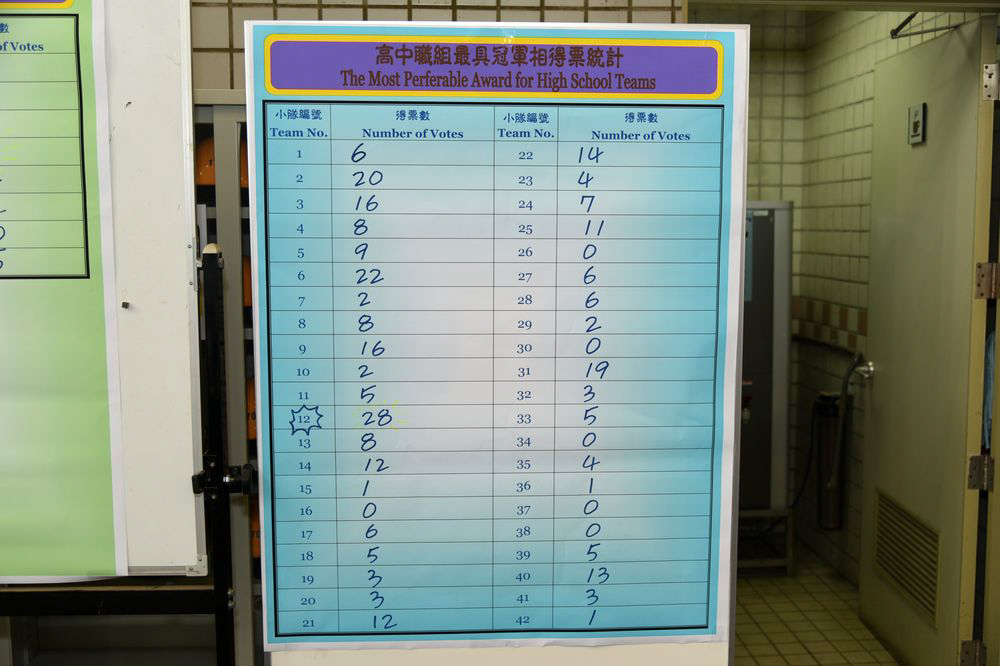 數
of Votes
高中職組最具冠軍相得票統計
The Most Perferable Award for High School Teams
小隊編號 得票數 小隊編號 得票數
Team No. Number of Votes Team No. Number of Votes
1 6 22 14
2 20 23 4
3 16 24 7
4 8 25 11
5 9 26 0
6 22 27 6
7 2 28 6
8 8 29 2
9 16 30 0
10 2 31 19
11 5 32 3
12 28 33 5
13 8 34 0
14 12 35 4
15 1 36 1
16 0 37 0
17 6 38 0
18 5 39 5
19 3 40 13
20 3 41 3
21 12 42 1